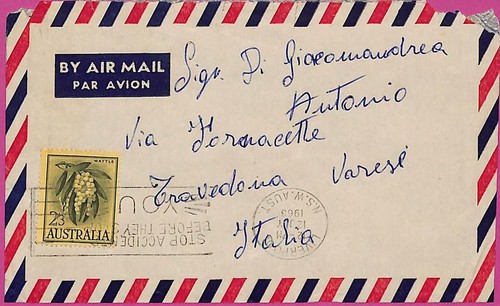 BY AIR MAIL
PAR AVION
Sigr. Di Giacomandrea
Antonio
Via Fornacette
Travedona Varese
Italia
WATTLE
2'3
AUSTRALIA
STOP ACCIDENTS
BEFORE THEY STOP
YOU
N.S.W. AUST.
1963